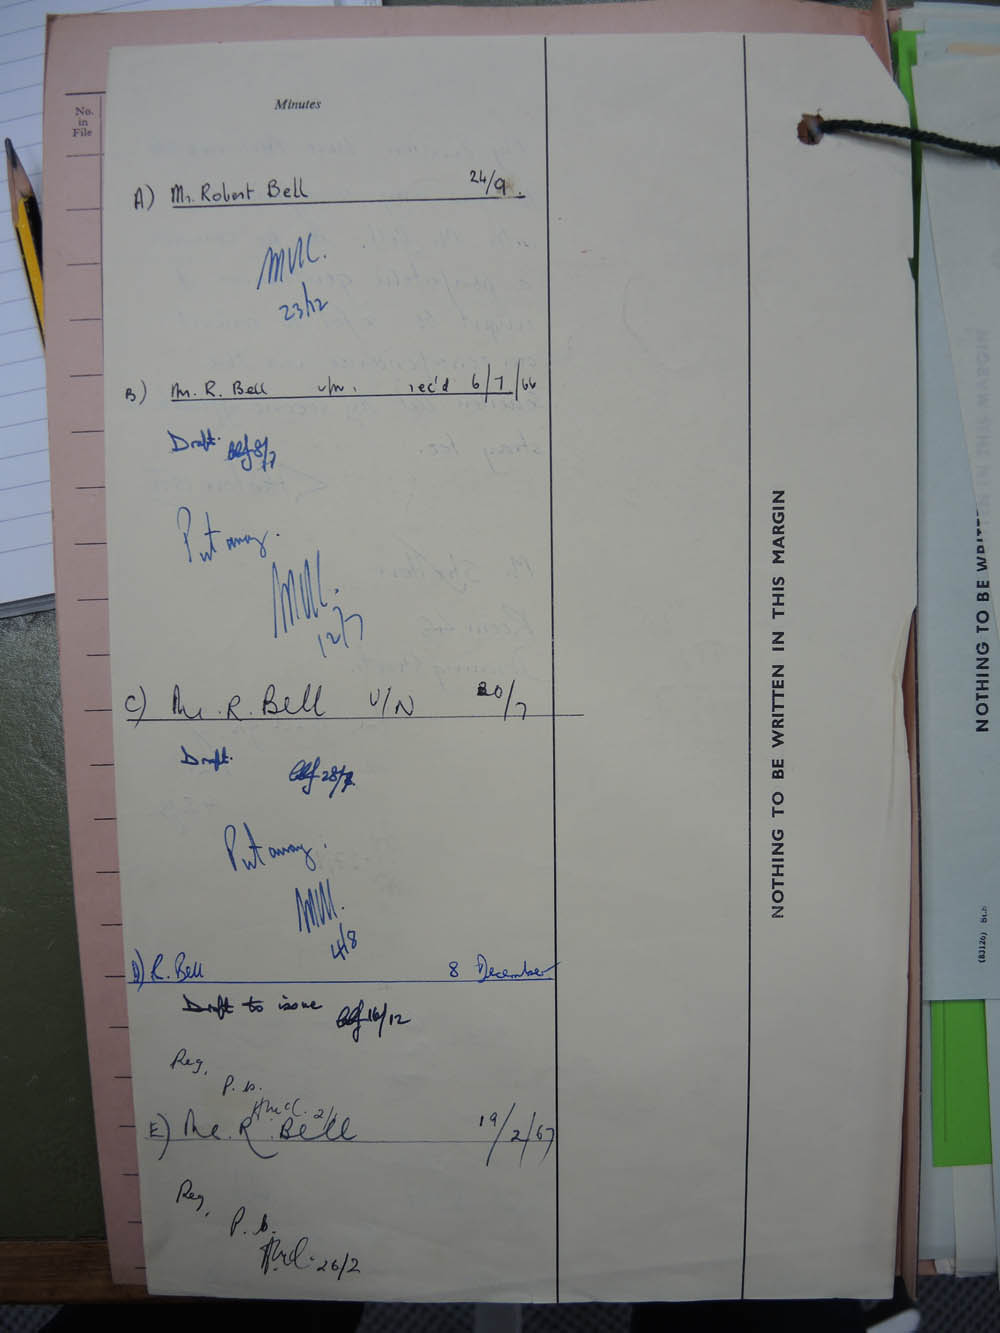 Minutes
No.
in
File
A) Mr. Robert Bell 24/9.
23/12
B) Mr. R. Bell rec'd 6/7/66
Draft. 8/7
Put away.
12/7
C) Mr. R. Bell U/N 20/7
Draft. 28/7
Put away.
4/8
D) R. Bell 8 December
Draft to issue 16/12
Reg,
P. a.
E) Mr. R. Bell 19/2/67
Reg,
P. a.
26/2
NOTHING TO BE WRITTEN IN THIS MARGIN
NOTHING TO BE WRITTEN IN THIS MARGIN
(83126)